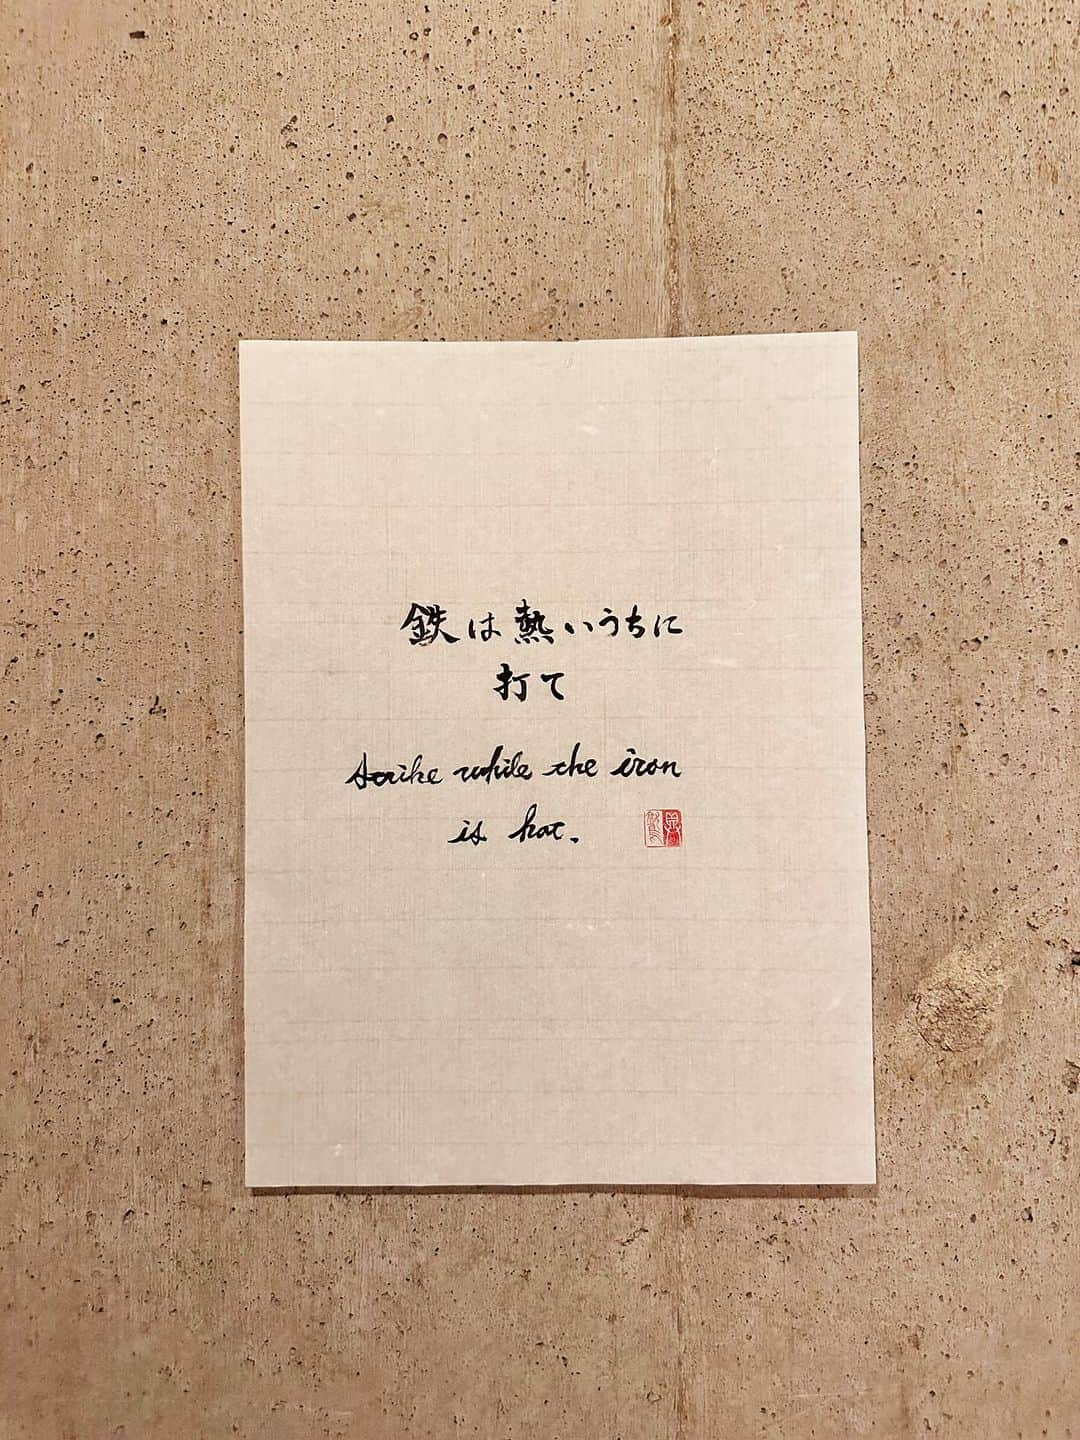 鉄は熱いうちに
打て
Strike while the iron
is hot.